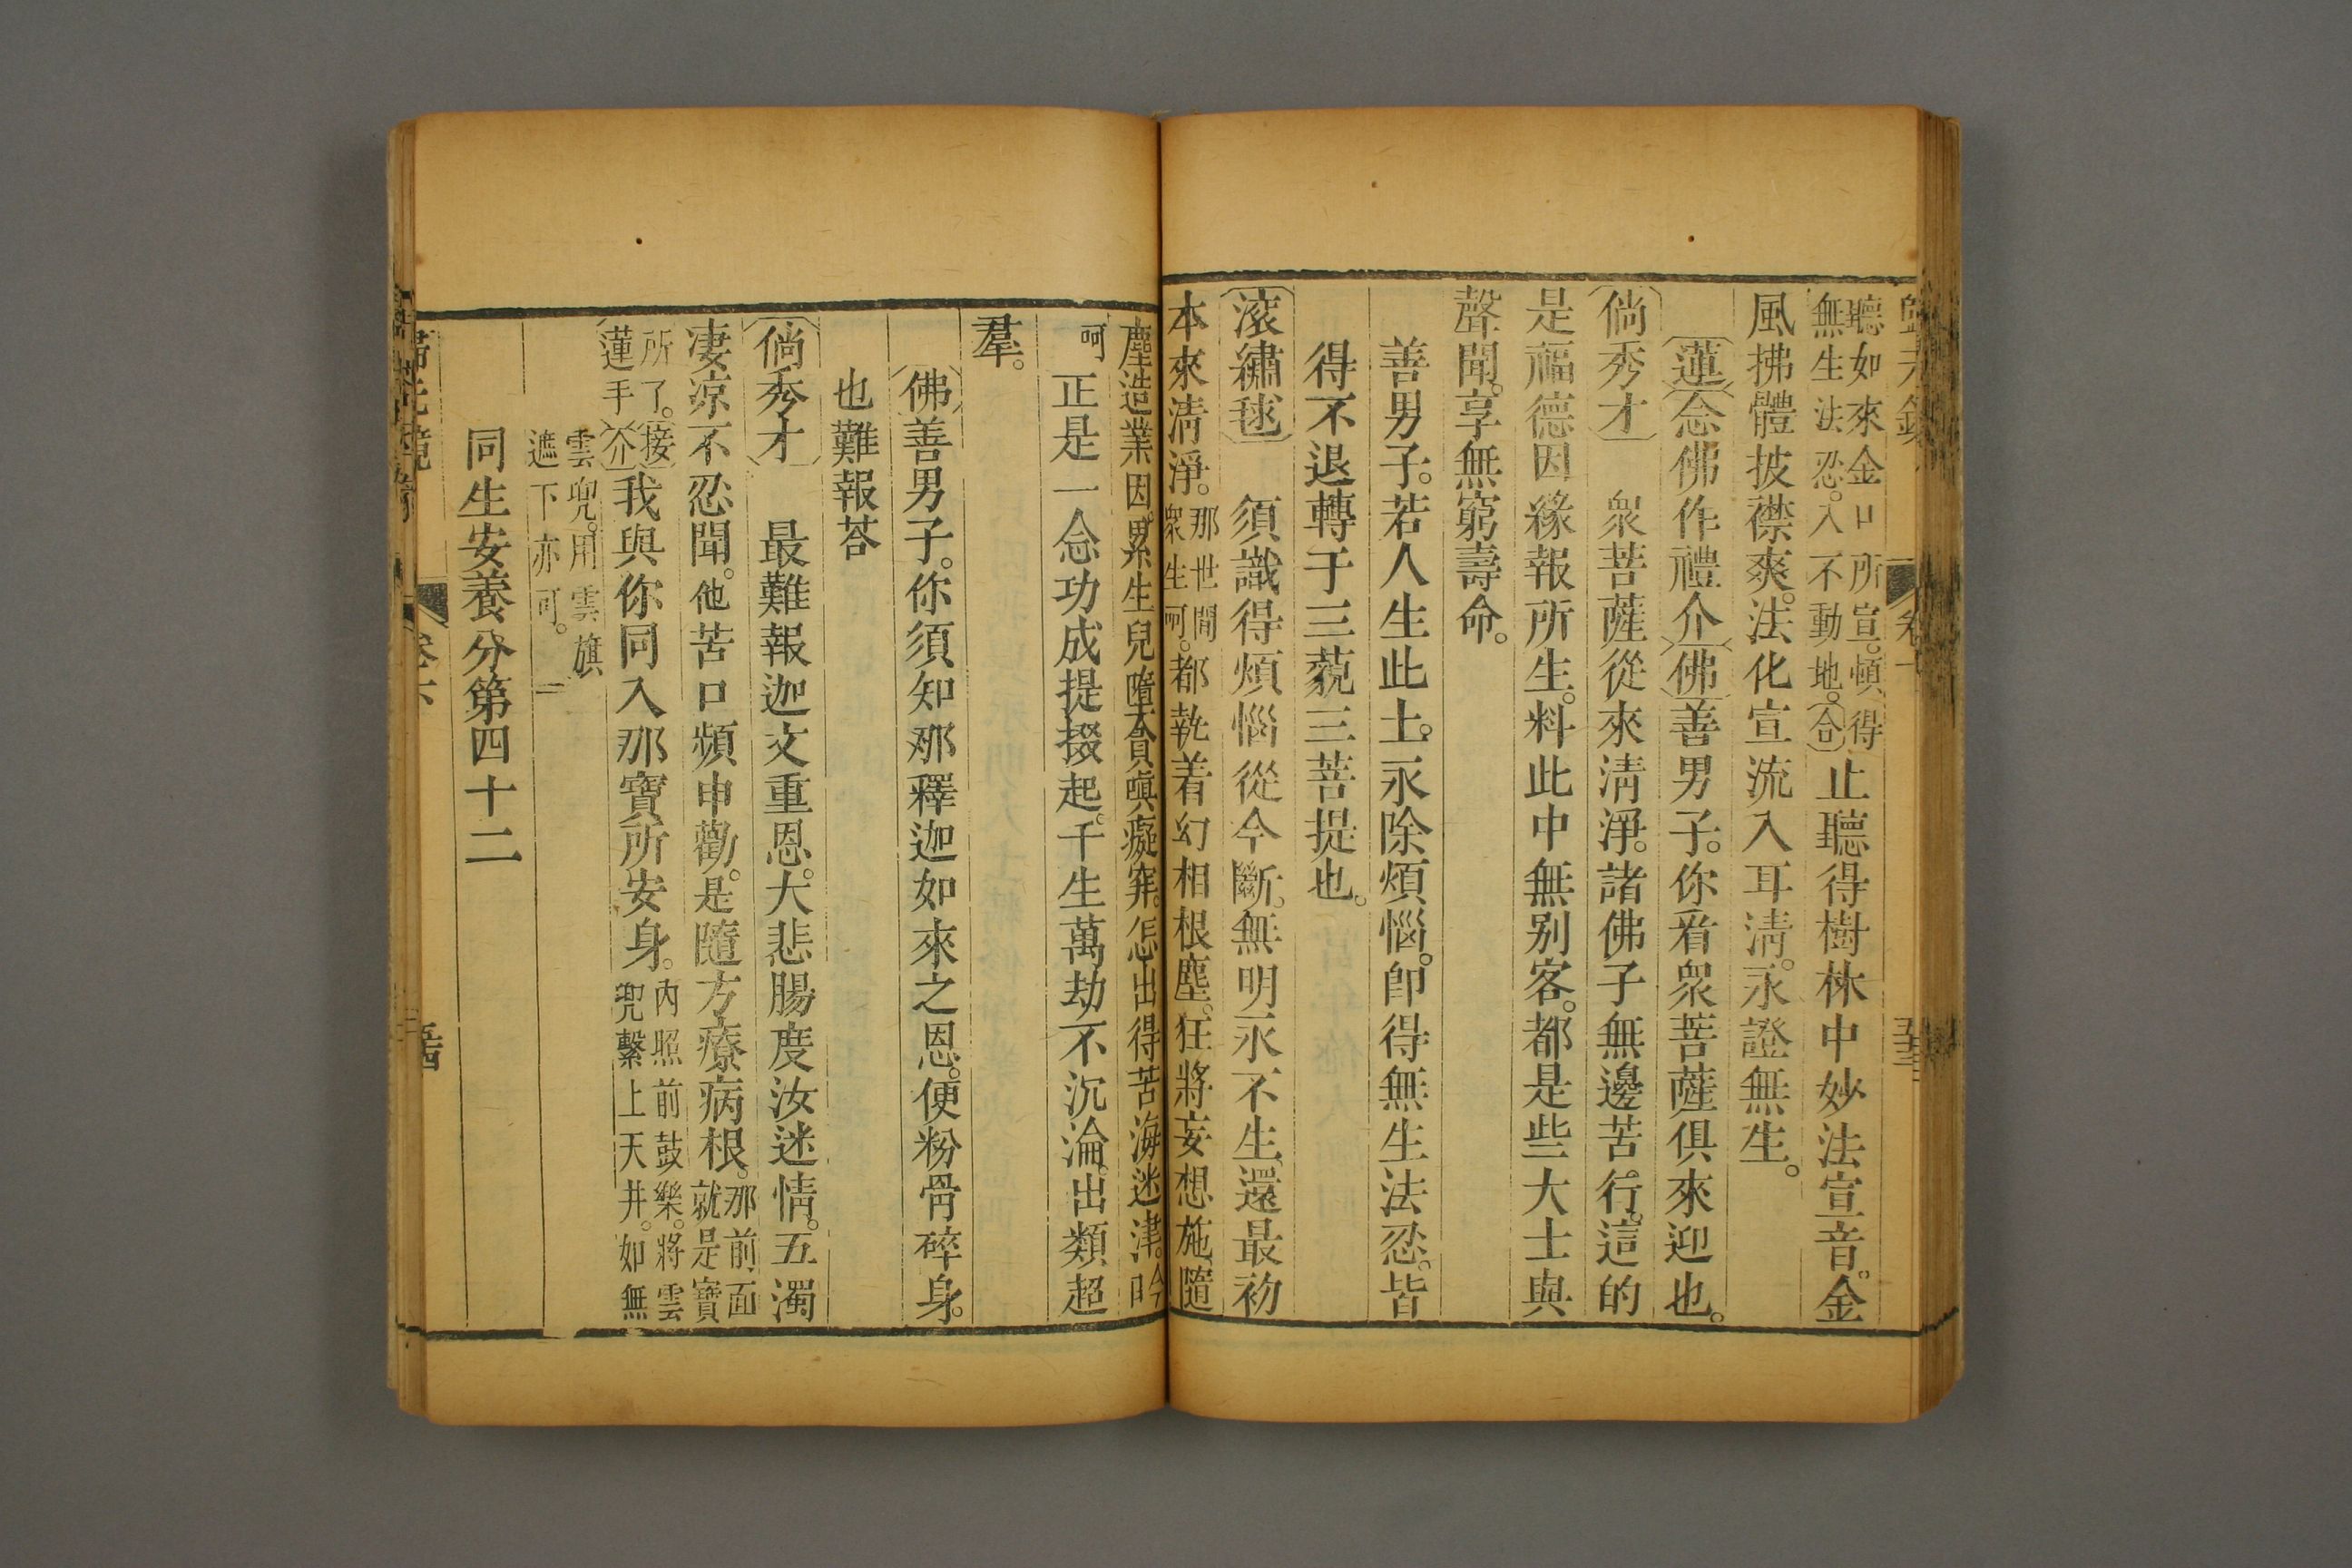 聽如來金口所宣。頓得
無生法忍。入不動地。合止聽得樹林中妙法宣音。金
風拂體披襟爽。法化宣流入耳清。永證無生。
蓮念佛作禮介佛善男子。你看衆菩薩俱來迎也。
倘秀才 衆菩薩從來清淨。諸佛子無邊苦行。這的
是福德因緣報所生。料此中無別客。都是些大士與
聲聞。享無窮壽命。
善男子。若人生此土。永除煩惱。即得無生法忍。皆
得不退轉于三藐三菩提也。
滚繡毬 須識得煩惱從今斷。無明永不生。還最初
本來清淨。那世間衆生呵。都執着幻相根塵。狂將妄想施。隨
塵造業因。累生兒墮貪嗔癡穽。怎出得苦海迷津。今日
呵正是一念功成提掇起。千生萬劫不沉淪。出類超
羣。
佛善男子。你須知那釋迦如來之恩。便粉骨碎身。
也難報荅
倘秀才 最難報迦文重恩。大悲腸度汝迷情。五濁
凄凉不忍聞。他苦口頻申勸。是隨方療病根。那前面就是寶
所了。接蓮手介我與你同入那寶所安身。內照前鼓樂。將雲兜繫上天井。如無
雲兜。用雲旗
遮下亦可。
同生安養分第四十二
卷六